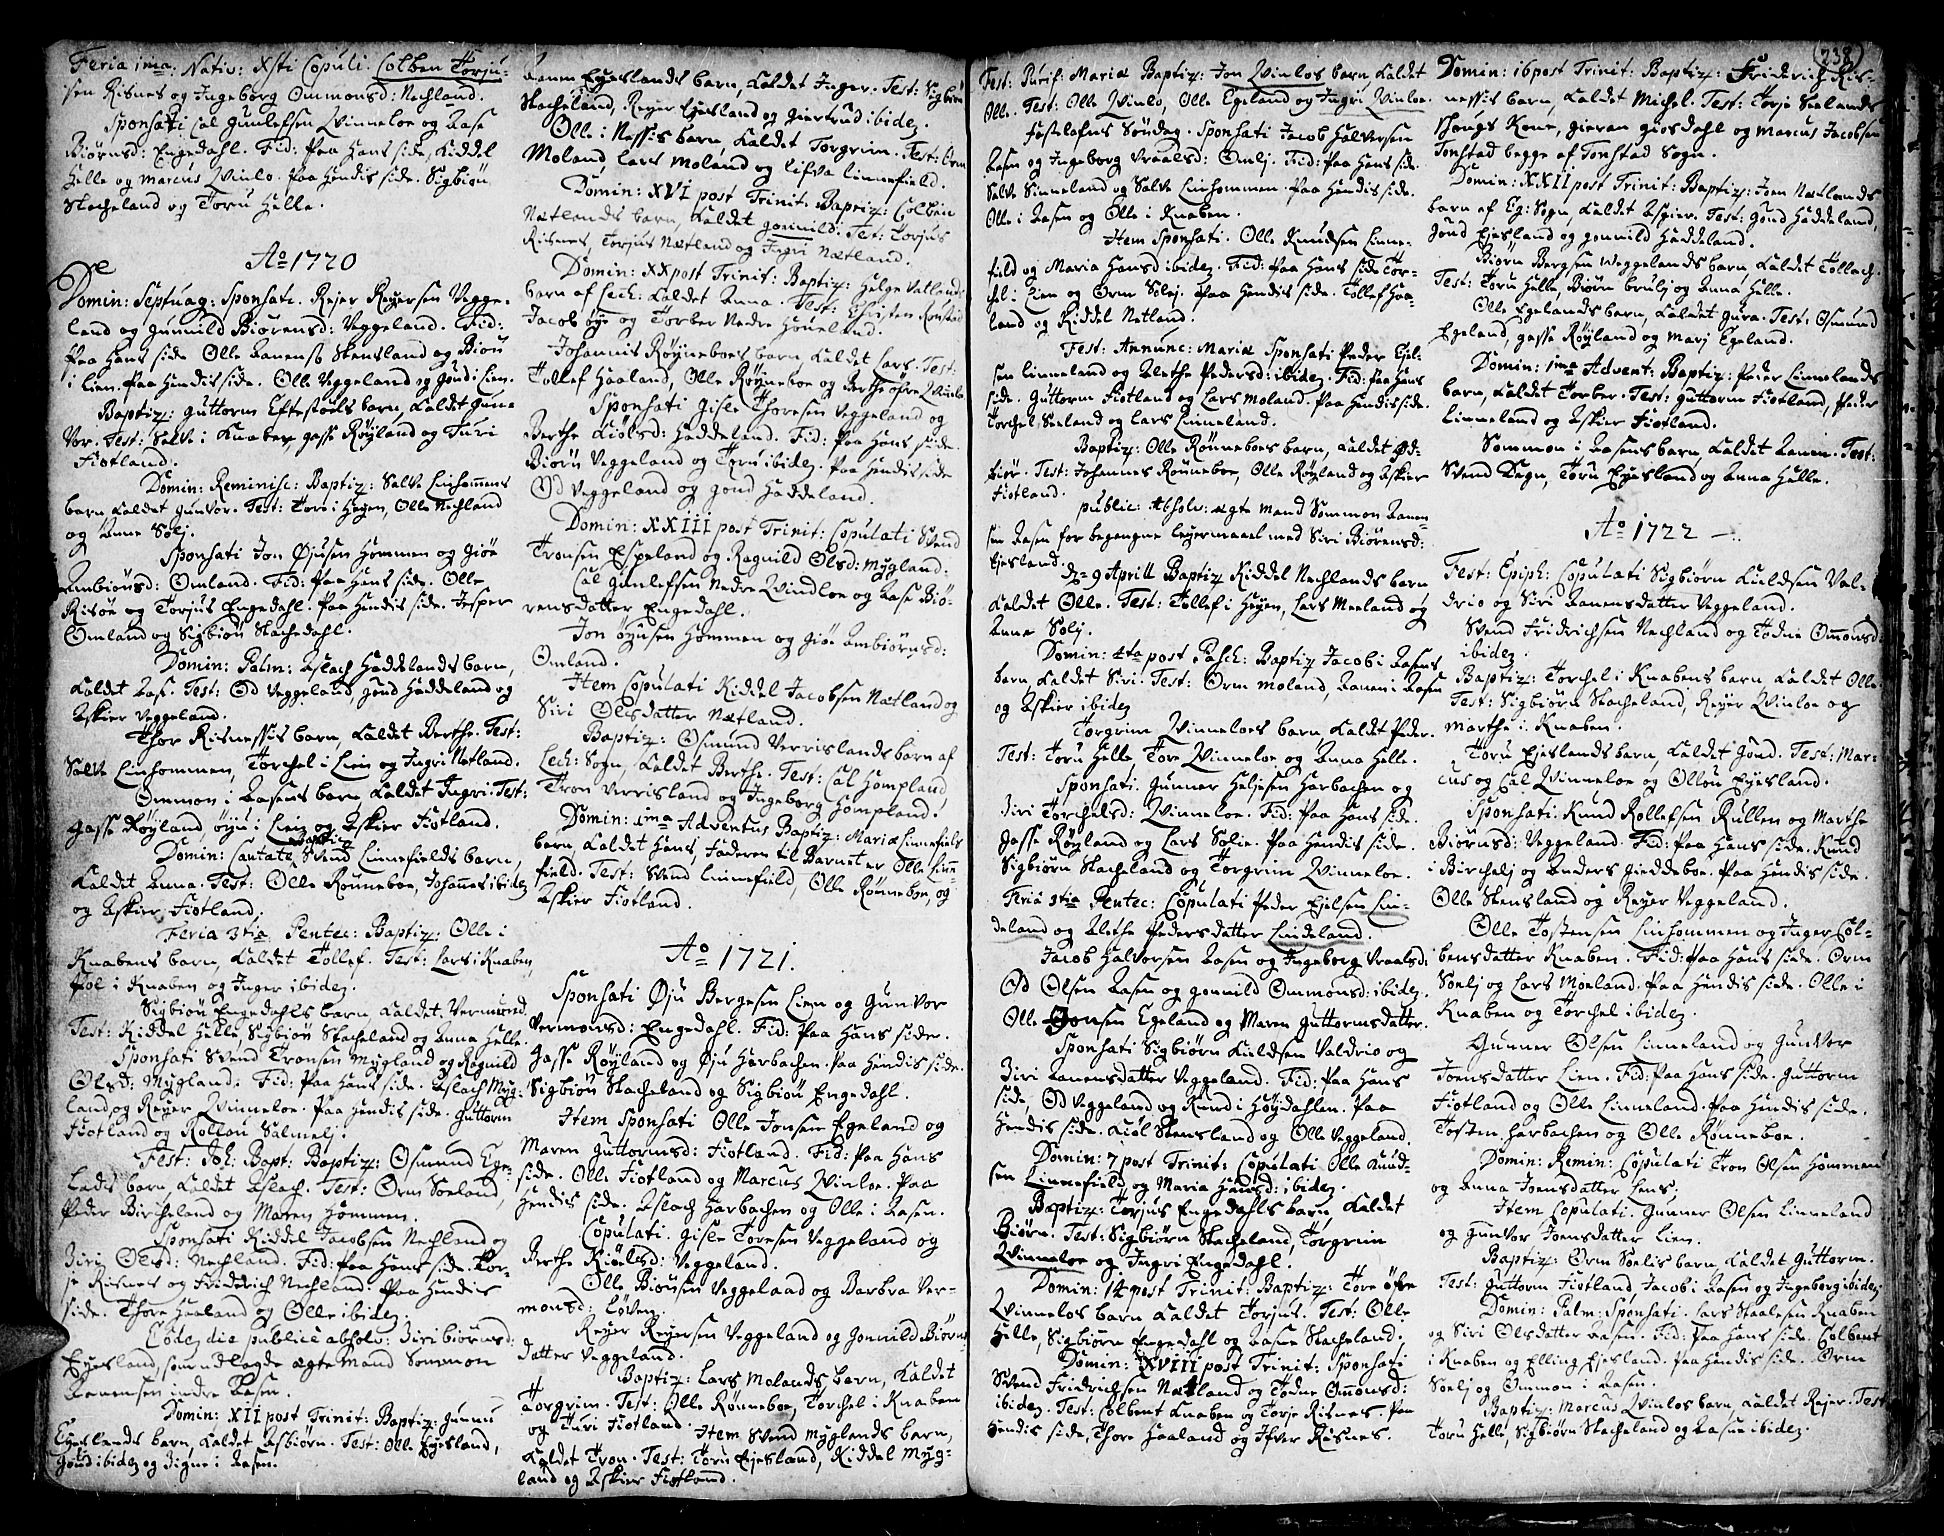 Feria 1ma: Nativ: Xsti Copuli. Colben Torju-
sen Risnes og Ingeborg Ommonsd: Nechland.
Sponsati Cal Gunlefsen Qvinneloe og Aase
Biørnsd: Engedahl. Fid: Paa Hans side, Kiddel
Helle og Marcus Qvinlo. Paa Hendis side. Sigbiøn
Stacheland og Toru Helle.
Ao 1720
Domin: Septuag: Sponsati. Rejer Reyersen Vegge-
land og Gunnild Biørensd: Veggeland. Fid:
Paa Hans side Olle Aanensø Stensland og Biøn
i Lien. Paa Hendis side. Olle Veggeland og Gond i Lien.
Baptiz: Guttorm Eftestøels barn, Kaldet Gun-
vor. Test: Salve i Knaben, Gasse Røyland og Turi
Fiotland.
Domin: Reminisc: Baptiz: Salve Linhommens
barn Kaldet Gunvor. Test: Tore i Heyen, Olle Nechland
og Anne Solj.
Sponsati Jon Øjusen Hommen og Giøe
Ambiørnsd: Omland. Fid: Paa Hans side. Olle
Risøe og Torjus Engedahl. Paa Hendis side. Jesper
Omland og Sigbiøn Stachedahl.
Domin: Palm: Aslach Haddelands barn,
Kaldet Aase. Test: Od Veggeland, Gond Haddeland og
Askier Veggeland.
Thor Risnessis barn, Kaldet Berthe. Test:
Salve Linhommen, Torchel i Lien og Ingri Netland.
Ommon i Aasens barn, Kaldet Ingri. Test:
Gasse Røyland, Øyu i Lien og Askier Fiotland.
Domin: Cantate Baptiz Svend Linnefields barn,
Kaldet Anna. Test: Olle Rønneboe, Johannes ibidez
og Askier Fiotland.
Feria 3tia Pentec: Baptiz: Olle i
Knabens barn, Kaldet Tollef. Test: Lars i Knaben,
Poel i Knaben og Inger ibidez.
Sigbiøn Engedahls barn, Kaldet Vermund.
Test: Kiddel Helle, Sigbiøn Stacheland og Anna Helle.
Sponsati Svend Tronsen Mygland og Ragnild
Olsd: Mygland. Fid: Paa Hans side. Aslach Myg-
land og Reyer Qvinneloe. Paa Hendis side. Guttorm
Fiotland og Rollou Salmelj.
Fest: Joh: Bapt: Baptiz: Osmund Ege-
lands barn, Kaldet Aslach. Test: Orm Soeland,
Peder Bircheland og Maren Hommen.
Sponsati Kiddel Jacobsen Nechland og
Ziri Olsd: Nechland. Fid: Paa Hans side. Tor-
je Risnes og Friderich Nechland. Paa Hendis
side. Thore Haaland og Olle ibidez.
Eodez die publice absolv: Ziri Biørnsd:
Eyesland, som udlagde ægte mand Sommon
Aanensen indre Aasen.
Domin: XII post Trinit: Baptiz: Gunnu
Eyeslands barn, Kaldet Asbiørn. Test: Olle Eyesland,
Gond ibidez og Signe i Aasen.
Aanen Eyeslands barn, Kaldet Inger. Test: Sigbiøn
Stacheland, Reyer Eyesland og Giertrud ibidez.
Olle i Nessis barn, Kaldet Torgrim. Test: Orm
Moland, Lars Moland og Lisva Linnefield.
Domin: XVI post Trinit: Baptiz: Colben
Nætlands barn, Kaldet Gonnild. Test: Torjus
Risnes, Torjus Nætland og Ingri Nætland.
Domin: XX post Trinit: Baptiz: Helge Vatlands
barn af Fech: Kaldet Anna. Test: Christen
Jacob Øye og Torber Nedre Houeland.
Johannis Røyneboes barn, Kaldet Lars. Test:
Tollef Haaland, Olle Rønneboe og Berthe Øfre Qvinlo.
Sponsati Gisle Thoresen Veggeland og
Berthe Kiølsd: Haddeland. Fid: Paa Hans side.
Biørn Veggeland og Toru ibidez. Paa Hendis side
Od Veggeland og Gond Haddeland.
Domin: XXIII post Trinit: Copulati Svend
Tronsen Espeland og Ragnild Olsd: Mygland:
Cal Gunlefsen Nedre Qvindloe og Aase Biø-
rensdatter Engedahl.
Jon Øyusen Hommen og Giøe Ambiørnsd:
Omland.
Item Copulati Kiddel Jacobsen Nætland og
Siri Olsdatter Nætland.
Baptiz: Osmund Verrislands barn af
Fech: Sogn, Kaldet Berthe. Test: Cal Hompland,
Tron Verrisland og Ingeborg Hompland.
Domin: 1ma Adventus Baptiz: Mariæ Linnefiels
barn, Kaldet Hans, Faderen til Barnet er Olle Linne-
field. Test: Svend Linnefield, Olle Rønneboe, og
Askier Fiotland.
Ao 1721.
Sponsati Øju Bergesen Lien og Gunvor
Vermonsd: Engedahl. Fid: Paa Hans side.
Gasse Røyland og Øju Harbachen. Paa Hendis side.
Sigbiøn Stacheland og Sigbiøn Engedahl.
Item Sponsati Olle Jonsen Egeland og
Maren Guttormsd: Fiotland. Fid: Paa Hans
side. Olle Fiotland og Marcus Qvinloe. Paa
Hendis side. Aslach Harbachen og Olle i Aasen.
Copulati. Gisle Toresen Veggeland og
Berthe Kiøelsd: Veggeland.
Olle Biønsen Veggeland og Barbra Ver-
monsd: Løven.
Reyer Reyersen Veggeland og Gonnild Biørns
datter Veggeland.
Baptiz: Lars Molands barn, Kaldet
Torgrim. Test: Olle Rønneboe, Torchel i Knaben
og Turi Fiotland. Item Svend Myglands barn,
Kaldet Tron. Test: Toru Eyesland, Kiddel Myg-
land og Askier Fiotland.
238
Fest: Purif: Mariæ Baptiz: Jon Qvinlos barn, Kaldet
Olle. Test: Olle Qvinlo, Olle Egeland og Ingri Qvinloe.
Fastelafns Søndag. Sponsati Jacob Halversen
Aasen og Ingeborg Vraalsd: Omlj. Fid: Paa Hans side.
Salve Sinneland og Salve Linhommen. Paa Hendis side.
Olle i Aasen og Olle i Knaben.
Item Sponsati. Olle Knudsen Linne-
field og Maria Hansd ibidez. Fid: Paa Hans side Tor-
chel i Lien og Orm Solej. Paa Hendis side. Tollef Haa-
land og Kiddel Netland.
Fest: Annunc: Mariæ Sponsati Peder Ejel-
sen Linneland og Alethe Pedersd: ibidez. Fid: Paa Hans
side. Guttorm Fiotland og Lars Moland. Paa Hendis side.
Torchel Seeland og Lars Linneland.
Baptiz: Olle Rønneboes barn, Kaldet Od-
biør. Test: Johannes Rønneboe, Olle Røyland og Askier
Fiotland.
Public: Absolv: ægte mand Sommon Aanen-
sen Aasen for begangne Leyermaael med Siri Biørensd:
Ejesland.
D: 9 Aprill Baptiz Kiddel Nechlands barn
Kaldet Olle. Test: Tollef i Heyen, Lars Meeland og
Anne Solj.
Domin: 4ta post Pasch: Baptiz Jacob i Aasens
barn Kaldet Siri. Test: Orm Moland, Aanen i Aasen
og Askier ibidez
Torgrim Qvinneloes barn, Kaldet Peder.
Test: Toru Helle, Tore Qvinneloe og Anna Helle.
Sponsati. Gunner Heljesen Harbachen og
Ziri Torchelsd: Qvinneloe. Fid: Paa Hans side.
Gasse Røyland og Lars Solie. Paa Hendis side.
Sigbiørn Stacheland og Torgrim Qvinneloe.
Feria 3tia Pentec: Copulati Peder Ejelsen Lin-
deland og Alethe Pedersdatter Lindeland.
Jacob Halvorsen Aasen og Ingeborg Vraalsd:
Od Olsen Aasen og Gonnild Ommonsd: ibidez.
Olle Jonsen Egeland og Maren Guttormsdatter.
Sponsati Sigbiørn Kieldsen Valdrio og
Ziri Aanensdatter Veggeland. Fid: Paa Hans
side, Od Veggeland og Knud i Høydahlen. Paa
Hendis side. Kiøl Stensland og Olle Veggeland.
Domin: 7 post Trinit: Copulati Olle Knud-
sen Linnefield og Maria Hansd: ibidez.
Baptiz: Torjus Engedahls barn, Kaldet
Biørn. Test: Sigbiørn Stacheland, Torgrim
Qvinneloe og Ingri Engedahl.
Domin: 14 post Trinit: Baptiz: Tore Øfre
Qvinnelos barn Kaldet Torjus. Test: Olle
Helle, Sigbiørn Engedahl og Aasne Stacheland.
Domin: XVIII post Trinit: Sponsati
Svend Fridrichsen Nætland og Todne Ommonsd:
ibidez. Test: Colbent Knaben og Torje Risnes. Paa
Hendis side, Thore Haaland og Ifver Risnes.
Domin: 16 post Trinit: Baptiz: Friderich Ris-
nessis barn, Kaldet Michel. Test: Torje Seelands
Hougs Kone, Gieran Giosdahl og Marcus Jacobsen
Tonstad begge af Tonstad Sogn.
Domin: XXII post Trinit: Baptiz: Joen Nætlands
barn af Eg: Sogn, Kaldet Asgier. Test: Gond Haddeland,
Gond Ejesland og Gonnild Haddeland.
Biørn Bergsen Weggelands barn, Kaldet Tollach.
Test: Toru Helle, Biørn Brulj og Anna Helle.
Olle Egelands barn, Kaldet Gura. Test: Osmund
Egeland, Gasse Røyland og Marj Egeland.
Domin: 1ma Advent: Baptiz: Peder Linnelands
barn, Kaldet Torber. Test: Guttorm Fiotland, Peder
Linneland og Askier Fiotland.
Sommon i Aasens barn, Kaldet Aanen. Test:
Svend Degn, Toru Eyesland og Anna Helle.
Ao 1722
Fest: Epiph: Copulati Sigbiørn Kieldsen Val-
drio og Siri Aanensdatter Veggeland.
Svend Fridrichsen Nechland og Todne Ommonsd:
ibidez.
Baptiz: Torchel i Knabens barn Kaldet Olle.
Test: Sigbiørn Stacheland, Reyer Qvinloe og
Marthe i Knaben.
Toru Ejeslands barn, Kaldet Gond. Test: Mar-
cus og Cal Qvinneloe og Ollou Eyesland.
Sponsati. Knud Rollefsen Rullen og Marthe
Biørnsd: Veggeland. Fid: Paa Hans side. Knud
i Birchelj og Anders Gieddeboe. Paa Hendis side.
Olle Stensland og Reyer Veggeland.
Olle Tostensen Linhommen og Inger Col-
bensdatter Knaben. Fid: Paa Hans side. Orm
Soelj og Lars Moeland. Paa Hendis side. Olle i
Knaben og Torchel ibidez.
Gunner Olsen Linneland og Gunvor
Joensdatter Lien. Fid: Paa Hans side. Guttorm
Fiotland og Olle Linneland. Paa Hendis side.
Tosten Harbachen og Olle Rønneboe.
Domin: Remin: Copulati Tron Olsen Hommen
og Anna Joensdatter Lens,
Item Copulati. Gunner Olsen Linneland
og Gunvor Joensdatter Lien.
Baptiz: Orm Soelis barn, Kaldet Guttorm.
Test: Guttorm Fiotland, Jacob i Aasen og Ingeborg ibidez
Domin: Palm: Sponsati. Lars Staalesen Knaben
og Siri Olsdatter Aasen. Fid: Paa Hans side. Colbent
i Knaben og Elling Ejesland. Paa Hendis side. Orm
Soelj og Ommon i Aasen.
Baptiz: Marcus Qvinlos barn, Kaldet Rejer. Test:
Toru Helle, Sigbiørn Stacheland og Aasne ibidez.